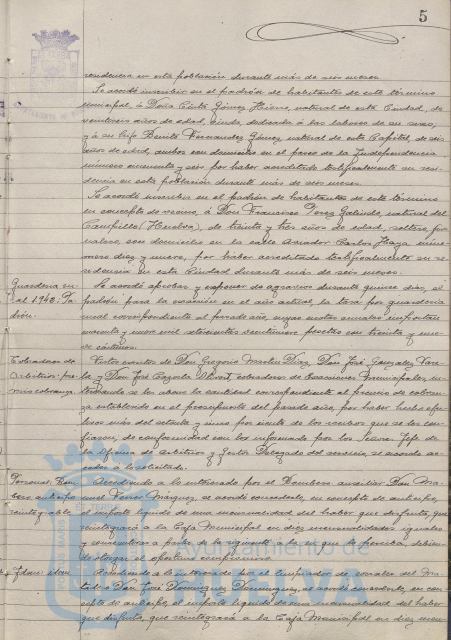 5
residencia en esta población durante más de seis meses.
Se acordó inscribir en el padrón de habitantes de este término
municipal, a Doña Cinta Gómez Hierro, natural de esta Ciudad, de
veintiseis años de edad, viuda, dedicada a las labores de su casa,
y a su hijo Benito Fernández Gómez natural de esta Capital, de seis
años de edad, ambos con domicilio en el paseo de la Independencia
número cincuenta y seis por haber acreditado testificalmente su resi-
dencia en esta población durante más de seis meses.
Se acordó inscribir en el padrón de habitantes de este término
en concepto de vecino, a Don Francisco Pérez Galindo, natural del
Campillo (Huelva), de treinta y tres años de edad, soltero, jor-
nalero, con domicilio en la calle Aviador Carlos Haya núme-
ro diez y nueve, por haber acreditado testificalmente su re-
sidencia en esta Ciudad durante más de seis meses.
Guardería ru-
ral 1940. Pa-
drón.
Se acordó aprobar y exponer de agravios durante quince días, el
padrón para la exacción en el año actual, la tasa por guardería
rural correspondiente al pasado año, cuyas cuotas anuales importan
cuarenta y nueve mil setecientas veintinueve pesetas con treinta y nue-
ve céntimos.
Cobradores de
Arbitrios: pre-
mio cobranza
Vistos escritos de Don Gregorio Martín Díaz, Don José González Vare-
la y Don José Cazorla Obort, cobradores de Exacciones Municipales,
se les abone la cantidad correspondiente al premio de cobran-
za establecido en el presupuesto del pasado año, por haber hecho efec-
tivos más del ochenta y cinco por ciento de los recursos que se les con-
fiaron, de conformidad con los informado por los Señores Jefe de
la Oficina de Arbitrios y Gestor Delegado del servicio, se acordó ac-
ceder a lo solicitado.
Personal. Bom-
bero anticipo
reintegrable
Accediendo a lo interesado por el Bombero auxiliar Don Ma-
nuel Ponce Márquez, se acordó concederle, en concepto de anticipo,
el importe líquido de una mensualidad del haber que disfruta, que
reintegrará a la Caja Municipal en diez mensualidades iguales
y consecutivas a partir de la siguiente a la en que lo perciba, debien-
do otorgar el oportuno compromiso.
Ayuntamiento de
HUELVA
Idem: idem
Accediendo a lo interesado por el limpiador de corrales del Ma-
tadero Don José Domínguez Domínguez, se acordó concederle, en con-
cepto de anticipo, el importe líquido de una mensualidad del haber
que disfruta, que reintegrará a la Caja Municipal en diez men-